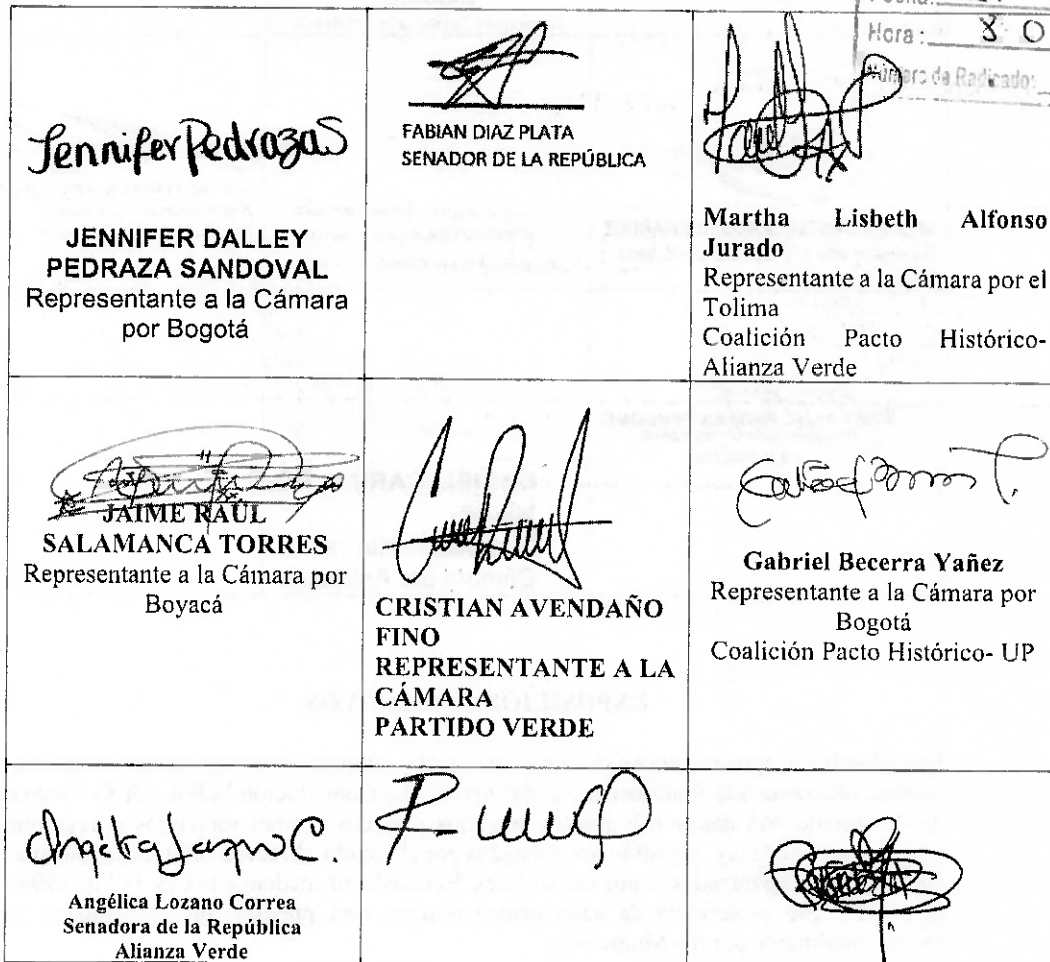 Hora: 80
Número de Radicado:
Jennifer Pedraza S
JENNIFER DALLEY
PEDRAZA SANDOVAL
Representante a la Cámara
por Bogotá
FABIAN DIAZ PLATA
SENADOR DE LA REPÚBLICA
Martha Lisbeth Alfonso
Jurado
Representante a la Cámara por el
Tolima
Coalición Pacto Histórico-
Alianza Verde
JAIME RAÚL
SALAMANCA TORRES
Representante a la Cámara por
Boyacá
CRISTIAN AVENDAÑO
FINO
REPRESENTANTE A LA
CÁMARA
PARTIDO VERDE
Gabriel Becerra Yañez
Representante a la Cámara por
Bogotá
Coalición Pacto Histórico- UP
Angélica Lozano C.
Angélica Lozano Correa
Senadora de la República
Alianza Verde